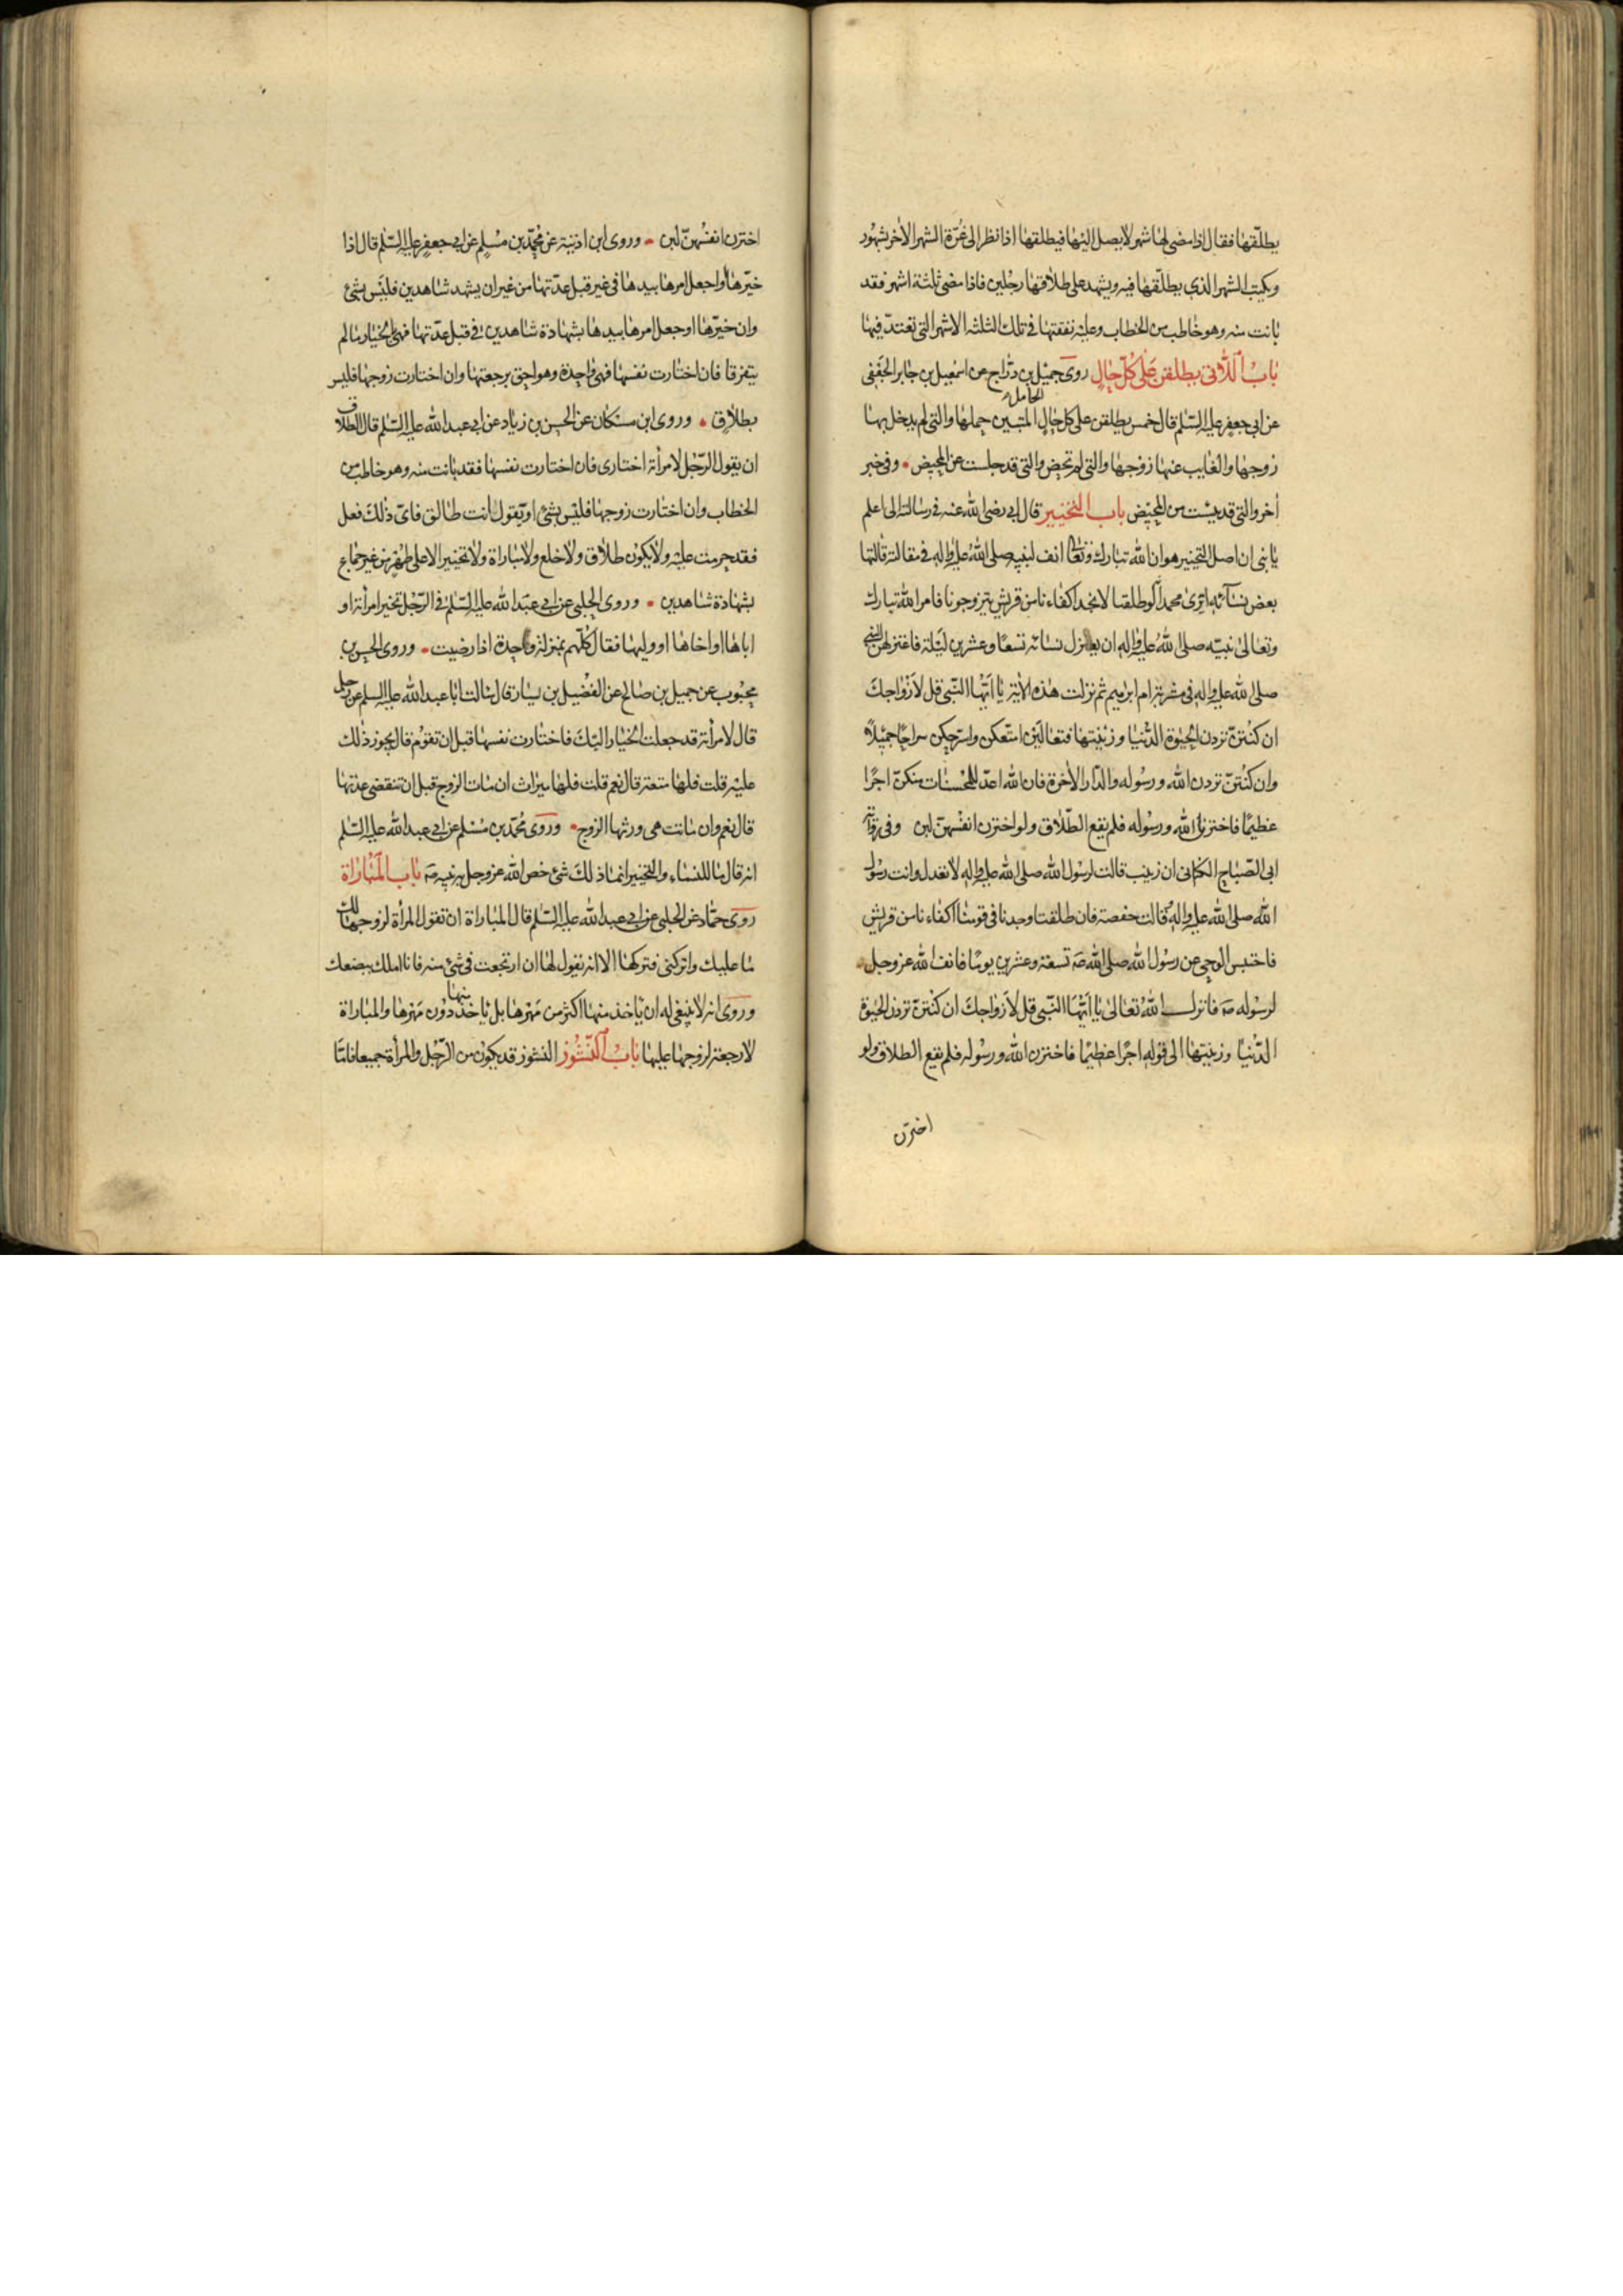 يطلّقها فقال اذا مضى لها شهر لا يصل اليها فيطلقها اذا نظر الى غرّة الشهر الاخر بشهود
ويكتب الشهر الذي يطلّقها فيه ويشهد على طلاقها رجلين فاذا مضى ثلثة اشهر فقد
بانت منه وهو خاطب من الخطاب وعليه نفقتها في تلك الثلثه الاشهر التى تعتدّ فيها
باب اللاتى يطلقن على كل حال روى جميل بن درّاج عن اسمعيل بن جابر الجعفى
عن ابي جعفر عليه السّلم قال خمس يطلقن على كل حال الحامل المتبين حملها والتى لم يدخل بها
زوجها والغايب عنها زوجها والتى لم تحض والتى قد جلست عن المحيض • وفى خبر
اخر والتى قد يئست من المحيض باب التخيير قال ابي رضى الله عنه في رسالته الى اعلم
يا بنى ان اصل التخيير هو ان الله تبارك وتعالى انف لنبيه صلى الله عليه واله في مقالة قالتها
بعض نسائه اترى محمد انه لو طلقنا لا نجد اكفاء نا من قريش يتزوجونا فامر الله تبارك
وتعالى نبيّه صلى الله عليه واله ان يعتزل نسائه تسعًا وعشرين ليلة فاعتزلهن النبي
صلى الله عليه واله في مشربة ام ابرهيم ثم نزلت هذه الاية يا ايّها النّبى قل لازواجك
ان كنتنّ تردن الحيوة الدّنيا وزينتها فتعالين امتّعكن واسرحكن سراحًا جميلًا
وان كنتنّ تردن الله ورسوله والدّار الاخرة فان الله اعدّ للمحسنات منكنّ اجرًا
عظيمًا فاخترن الله ورسوله فلم يقع الطّلاق ولو اخترن انفسهنّ لبن وفى رواية
ابى الصّباح الكنانى ان زينب قالت لرسول الله صلى الله عليه واله لا تعدل وانت رسول
الله صلى الله عليه واله وقالت حفصة فان طلقتنا وجدنا في قومنا اكفاء نا من قريش
فاحتبس الوحي عن رسول الله صلى الله صه تسعة وعشرين يومًا فانف الله عز وجل
لرسوله صه فانزل الله تعالى يا ايّها النّبى قل لازواجك ان كنتنّ تردن الحيوة
الدّنيا وزينتها الى قوله اجرًا عظيمًا فاخترن الله ورسوله فلم يقع الطلاق ولو
اخترن
اخترن انفسهنّ لبن • وروى ابن اذينة عن محمّد بن مسلم عن ابي جعفر عليه السّلم قال اذا
خيّرها او اجعل امرها بيدها في غير قبل عدّتها من غير ان يشهد شاهدين فليس بشئ
وان خيّرها او جعل امرها بيدها بشهادة شاهدين في قبل عدّتها فهى بالخيار ما لم
يتفرقا فان اختارت نفسها فهى واحدة وهو احق برجعتها وان اختارت زوجها فليس
بطلاق • وروى ابن مسكان عن الحسن بن زياد عن ابي عبد الله عليه السّلم قال الطلاق
ان يقول الرّجل لامرأته اختارى فان اختارت نفسها فقد بانت منه وهو خاطب من
الخطاب وان اختارت زوجها فليس بشئ او يقول انت طالق فاىّ ذلك فعل
فقد حرمت عليه ولا يكون طلاق ولا خلع ولا مباراة ولا تخيير الا على طهر من غير جماع
بشهادة شاهدين • وروى الحلبي عن ابي عبد الله عليه السّلم في الرّجل تخير امرأته او
اباها او اخاها او وليها فقال كلّهم بمنزلة واحدة اذا رضيت • وروى الحسن بن
محبوب عن جميل بن صالح عن الفضيل بن يسار قال سالت ابا عبد الله عليه السلم عن رجل
قال لامرأته قد جعلت الخيار اليك فاختارت نفسها قبل ان تقوم قال يجوز ذلك
عليه قلت فلها متعة قال نعم قلت فلها ميراث ان مات الزوج قبل ان تنقضى عدتها
قال نعم وان ماتت هى ورثها الزوج • وروى محمّد بن مسلم عن ابي عبد الله عليه السّلم
انه قال ما للنساء والتخيير انما ذلك شئ خص الله عز وجل به نبيه صه باب المباراة
روى حمّاد عن الحلبي عن ابي عبد الله عليه السّلم قال المباراة ان تقول المرأة لزوجها لك
ما عليك واتركنى فتركها الا انه يقول لها ان ارتجعت في شئ منه فانا املك ببضعك
وروى انه لا ينبغي له ان ياخذ منها اكثر من مهرها بل ياخذ منها دون مهرها والمباراة
لا رجعة لزوجها عليها باب النّشوز النشوز قد يكون من الرّجل والمرأة جميعا فامّا